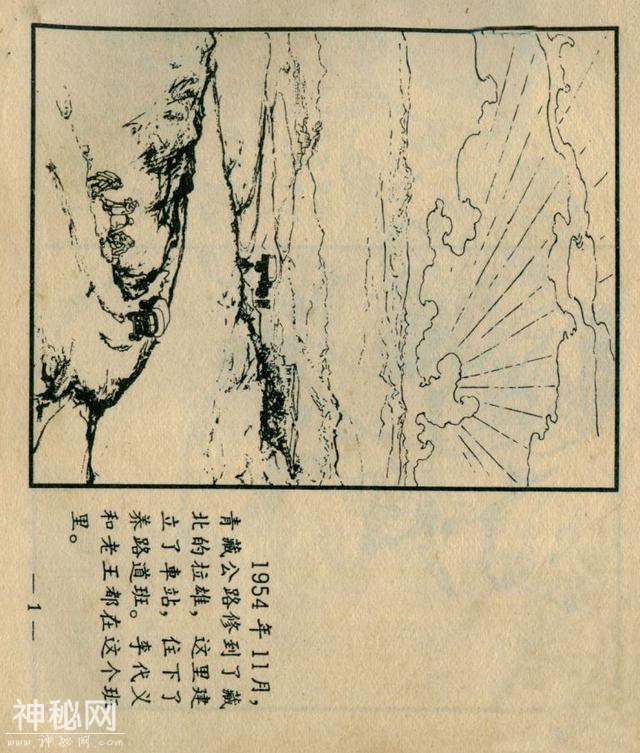 1954年11月,
青藏公路修到了藏
北的拉雄，这里建
立了車站，住下了
养路道班。李代义
和老王都在这个班
里。
— 1 —
神秘网
www.shenmiw.com